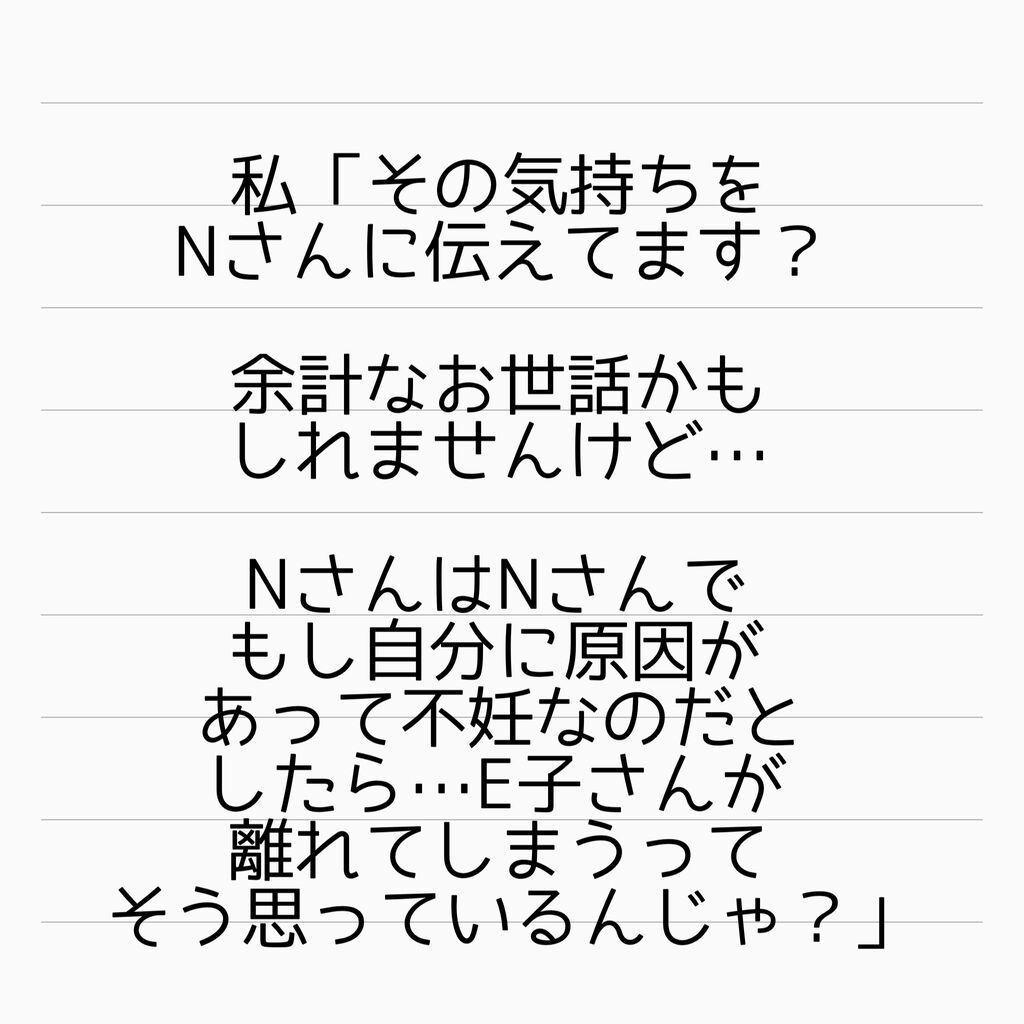 私「その気持ちを
Nさんに伝えてます？
余計なお世話かも
しれませんけど…
NさんはNさんで
もし自分に原因が
あって不妊なのだと
したら…E子さんが
離れてしまうって
そう思っているんじゃ？」